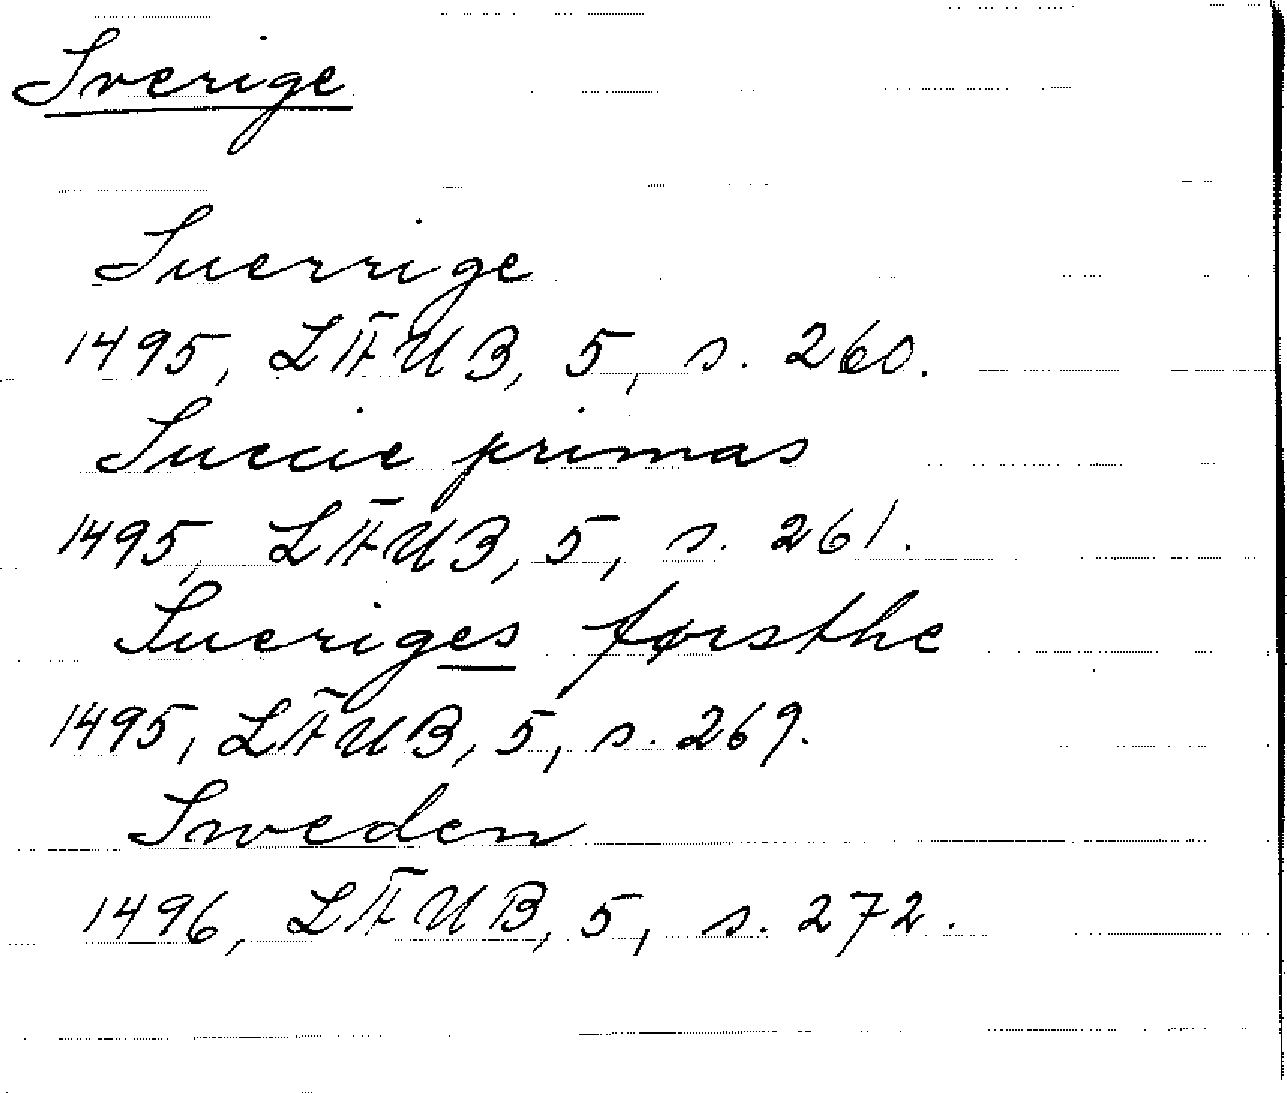 Sverige
Suerrige
1495, LFUB, 5, s. 260.
Suecie primas
1495, LFUB, 5, s. 261.
Sueriges førsthe
1495, LFUB, 5, s. 269.
Sweden
1496, LFUB, 5, s. 272.